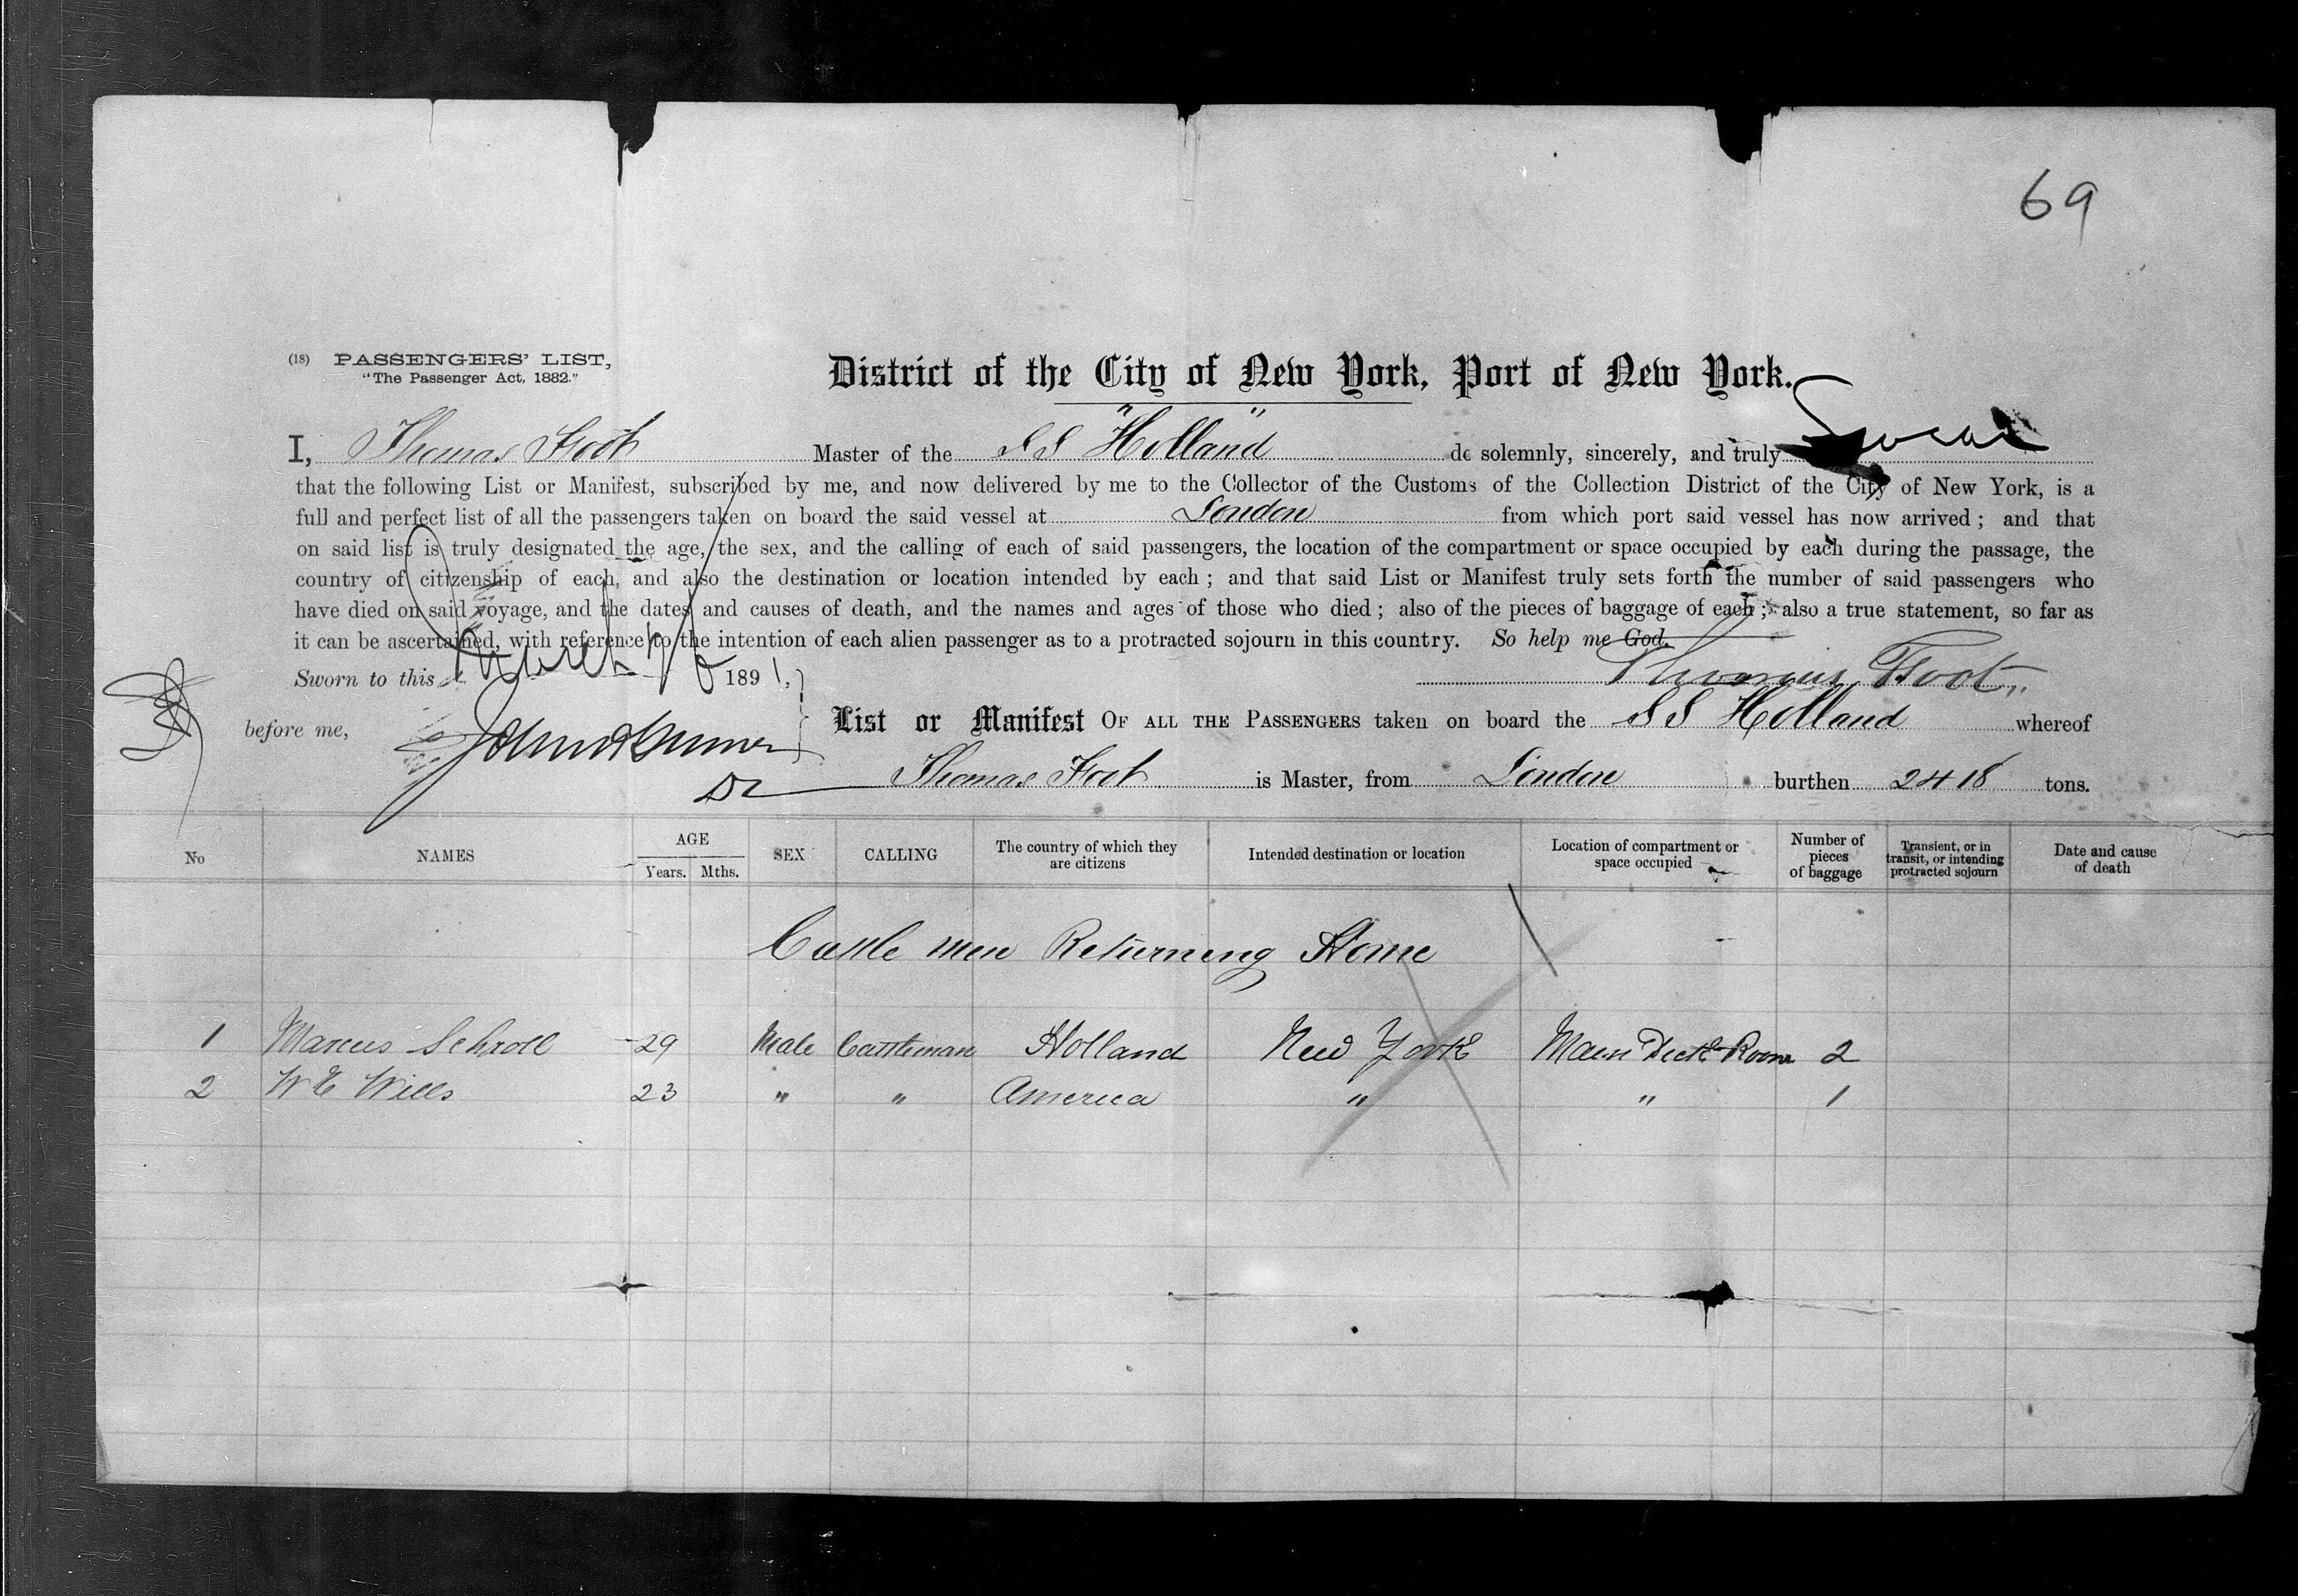 69
(18) PASSENGERS' LIST,
"The Passenger Act, 1882."
District of the City of New York, Port of New York.
I, Thomas Foot Master of the SS "Holland" do solemnly, sincerely, and truly Swear
that the following List or Manifest, subscribed by me, and now delivered by me to the Collector of the Customs of the Collection District of the City of New York, is a
full and perfect list of all the passengers taken on board the said vessel at London from which port said vessel has now arrived; and that
on said list is truly designated the age, the sex, and the calling of each of said passengers, the location of the compartment or space occupied by each during the passage, the
country of citizenship of each, and also the destination or location intended by each; and that said List or Manifest truly sets forth the number of said passengers who
have died on said voyage, and the dates and causes of death, and the names and ages of those who died; also of the pieces of baggage of each; also a true statement, so far as
it can be ascertained, with reference to the intention of each alien passenger as to a protracted sojourn in this country. So help me God.
Sworn to this March 1891, Thomas Foot
before me,
List or Manifest OF ALL THE PASSENGERS taken on board the SS Holland whereof
Thomas Foot is Master, from London burthen 2418 tons.
No NAMES AGE Years. Mths. SEX CALLING The country of which they are citizens Intended destination or location Location of compartment or space occupied Number of pieces of baggage Transient, or in transit, or intending protracted sojourn Date and cause of death
Cattle men Returning Home
1 Marcus Schroll 29 Male Cattleman Holland New York Main Deck Room 2
2 W E Wills 23 " " America " " 1